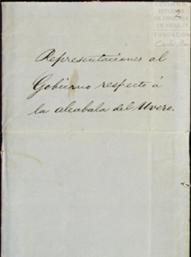 Representaciones al
Gobierno respecto á
la alcabala del Uvero.